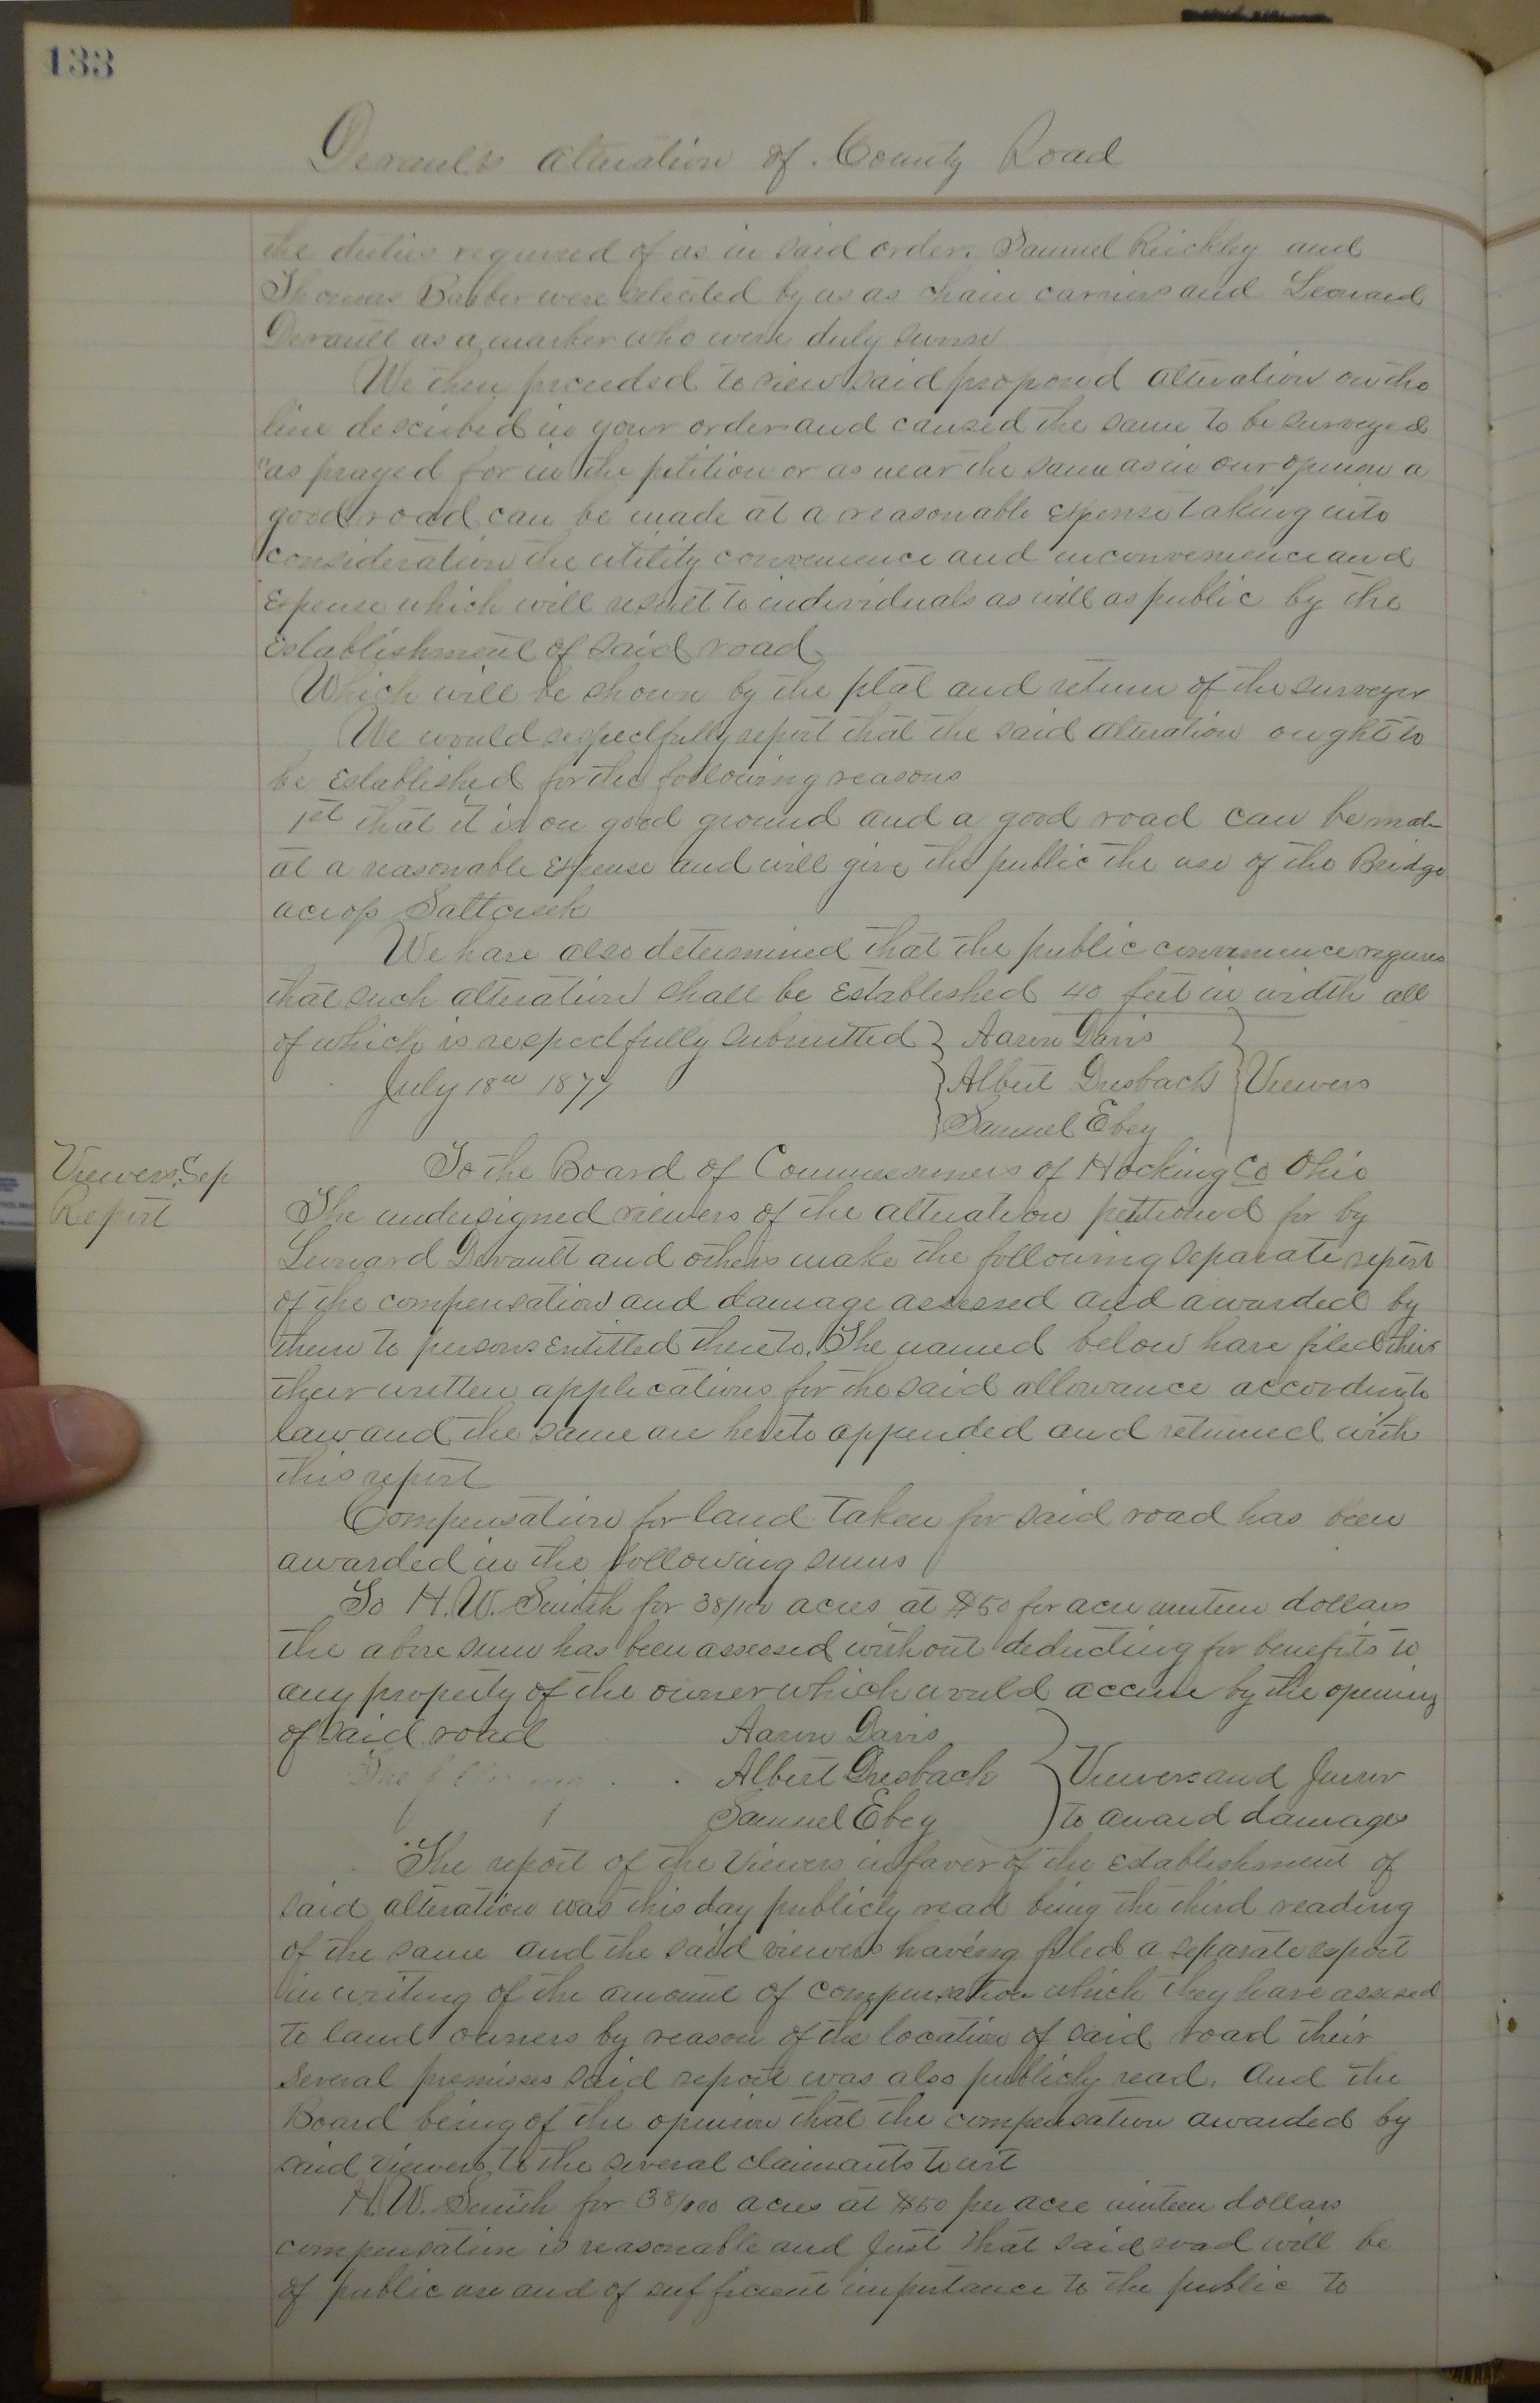 133
Devaults alteration of County Road
the duties required of us in said order. Samuel Reickley and
Thomas Barber were selected by us as chain carriers and Leonard
Devault as a marker who were duly sworn
We then proceeded to view said proposed alteration on the
line described in your order and caused the same to be surveyed
as prayed for in the petition or as near the same as in our opinion a
good road can be made at a reasonable expense taking into
consideration the utility convenience and inconvenience and
Expense which will result to individuals as well as public by the
establishment of said road
Which will be shown by the plat and return of the surveyor
We would respectfully report that the said alteration ought to
be Established for the following reasons
1st that it is on good ground and a good road can be made
at a reasonable Expense and will give the public the use of the Bridge
across Saltcreek
We have also determined that the public convenience requires
that such alteration shall be Established 40 feet in width all
of which is respectfully submitted } Aaron Davis
July 18th 1877 } Albert Dresbach } Viewers
} Samuel Ebey
Viewers Sep
Report
To the Board of Commissioners of Hocking Co Ohio
The undersigned viewers of the alteration petitioned for by
Leonard Devault and others make the following separate report
of the compensation and damage assessed and awarded by
them to persons entitled thereto. The named below have filed their
their written applications for the said allowance according to
law and the same are hereto appended and returned with
this report
Compensation for land taken for said road has been
awarded in the following sums
To H. W. Smith for 38/100 acres at $50 per acre nineteen dollars
the above sum has been assessed without deducting for benefits to
any property of the owner which would accrue by the opening
of said road Aaron Davis
Albert Dresbach } Viewers and Juror
Samuel Ebey } to award damages
The report of the Viewers in faver of the establishment of
said alteration was this day publicly read being the third reading
of the same and the said viewers having filed a separate report
in writing of the amount of compensation which they have assessed
to land owners by reason of the location of said road their
several premises said report was also publicly read. And the
Board being of the opinion that the compensation awarded by
said viewers to the several claimants to wit
H. W. Smith for 38/100 acres at $50 per acre nineteen dollars
compensation is reasonable and Just that said road will be
of public use and of sufficient importance to the public to